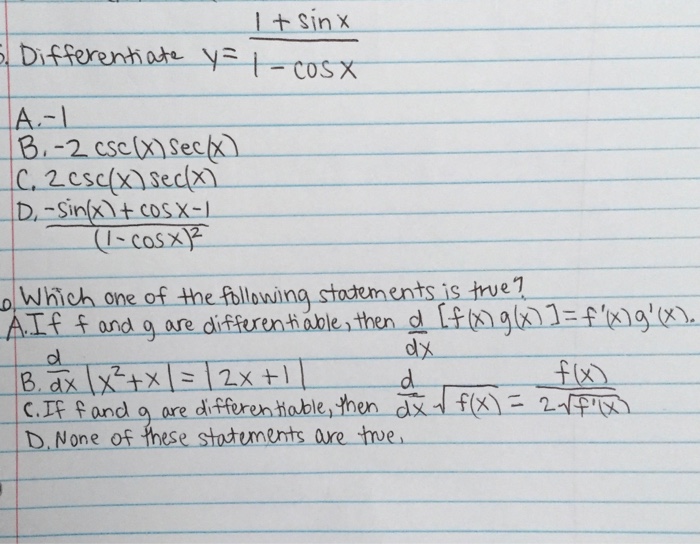 5. Differentiate y = 1 + sin x / 1 - cos x
A. -1
B. -2 csc(x) sec(x)
C. 2 csc(x) sec(x)
D. -sin(x) + cos x - 1 / (1 - cos x)²
Which one of the following statements is true?
A. If f and g are differentiable, then d/dx [f(x) g(x)] = f'(x) g'(x).
B. d/dx |x² + x| = |2x + 1|
C. If f and g are differentiable, then d/dx √f(x) = f(x) / 2√f'(x)
D. None of these statements are true.